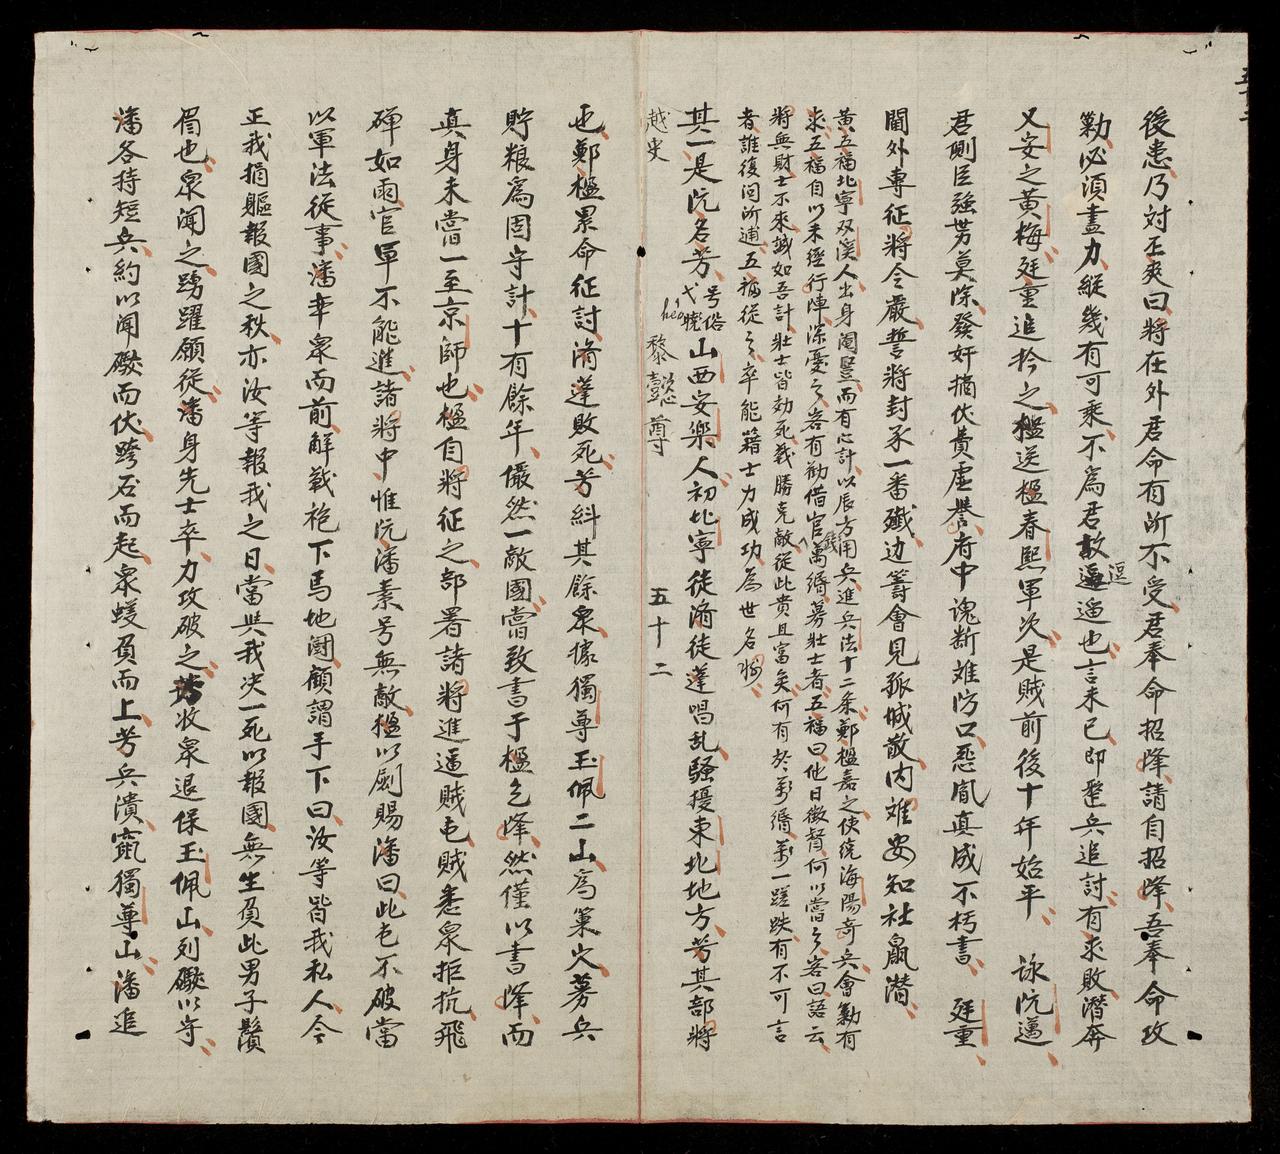 後患乃対丕爽曰將在外君命有所不受君奉命招降請自招降吾奉命攻
勦必須盡力縱幾有可乘不爲君敵逗遛也言未已即整兵追討有求敗潛奔
又安之黃梅廷重追拎之檻送楹春熙軍次是賊前後十年始平 詠阮邁
君側臣強势莫除發奸摘伏賁虛譽府中魂斷难防口悪胤真成不朽書 廷重
閫外專征將令嚴誓將封豕一番殲边籌會見孤城散内难安知社鼠潛
黃五福北寧双溪人出身閹豎而有心計以辰方用兵進兵法十二条鄭楹嘉之使統海陽奇兵會勦有
求五福自以未經行陣深憂之客有勸借官錢萬緡募壯士者五福曰他日徵督何以當之客曰語云
將無財士不來誠如吾計壯士皆効死戰勝克敵從此貴且富矣何有於萬緡萬一蹉跌有不可言
者誰復问所逋五福從之卒能籍士力成功為世名將
其一是阮名芳号俗弋嘵heo山西安樂人初北寧徒濟徒蓬唱乱騷擾東北地方芳其部將
越史 黎懿尊 五十二
也鄭楹累命征討濟蓬敗死芳糾其餘衆據獨尊玉佩二山為巢穴募兵
貯粮為固守計十有餘年儼然一敵國嘗致書于楹乞降然僅以書降而
真身未嘗一至京師也楹自將征之部署諸將進逼賊屯賊悉衆拒抗飛
礟如雨官軍不能進諸將中惟阮潘素号無敵楹以劍賜潘曰此屯不破當
以軍法從事潘率衆而前解戰袍下馬地圖顧謂手下曰汝等皆我私人今
正我捐軀報國之秋亦汝等報我之日當與我决一死以報國無生負此男子鬚
眉也衆聞之踴躍願從潘身先士卒力攻破之芳收衆退保玉佩山列礟以守
潘各持短兵約以聞礟而伏跨石而起衆蟻負而上芳兵潰竄獨尊山潘追